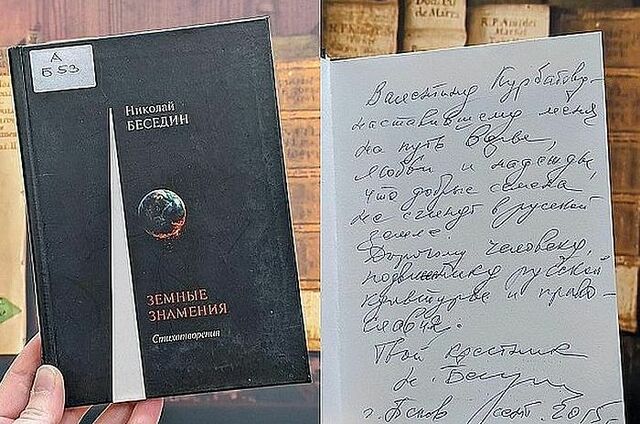 А
Б 53
Николай
БЕСЕДИН
ЗЕМНЫЕ
ЗНАМЕНИЯ
Стихотворения
R.P. Amedei
Валентину Курбатову –
наставившему меня
на путь веры,
любви и надежды,
что добрые семена
не сгинут в русской
земле
Дорогому человеку,
подвижнику русской
культуры и право-
славия.
Твой крестник
Н. Бесед
г. Псков сент. 2015